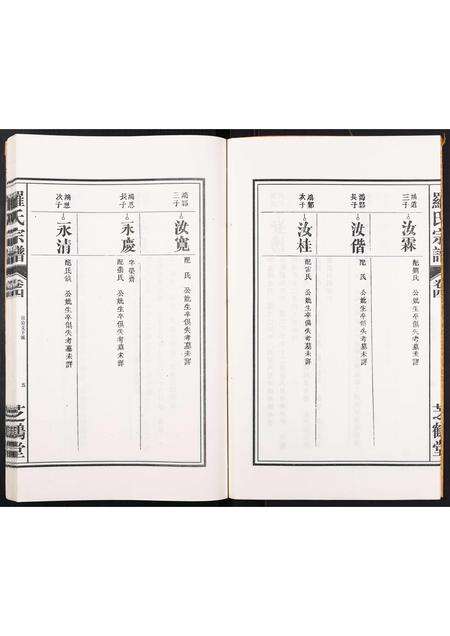 羅氏宗譜
卷四
芝鶴堂
三子
汝霖
公妣生卒俱失考墓未詳
鴻鄒
長子
汝偕
配 氏 公妣生卒俱失考墓未詳
鴻鄒
次子
汝桂
公妣生卒俱失考墓未詳
鴻鄒
三子
汝寬
配 氏 公妣生卒俱失考墓未詳
鴻恩
長子
永慶
字榮齋
配張氏 公妣生卒俱失考墓未詳
鴻恩
次子
永清
公妣生卒俱失考墓未詳
羅氏宗譜
卷四
五
芝鶴堂